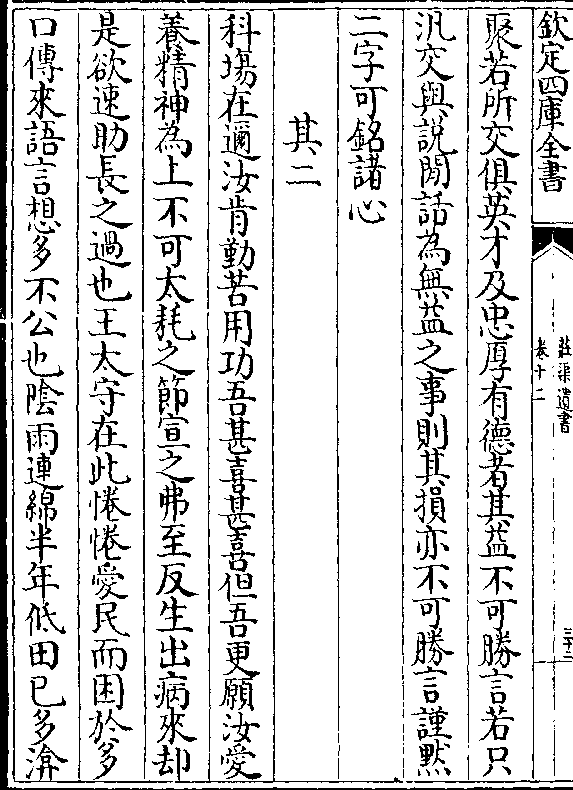 欽定四庫全書
莊渠遺書
卷十二
三十二
聚若所交俱英才及忠厚有德者其益不可勝言若只
汎交與說閒話為無益之事則其損亦不可勝言謹黙
二字可銘諸心
其二
科塲在邇汝肯勤苦用功吾甚喜甚喜但吾更願汝愛
養精神為上不可太耗之節宣之弗至反生出病來却
是欲速助長之過也王太守在此惓惓愛民而困於多
口傳來語言想多不公也隂雨連綿半年低田已多渰